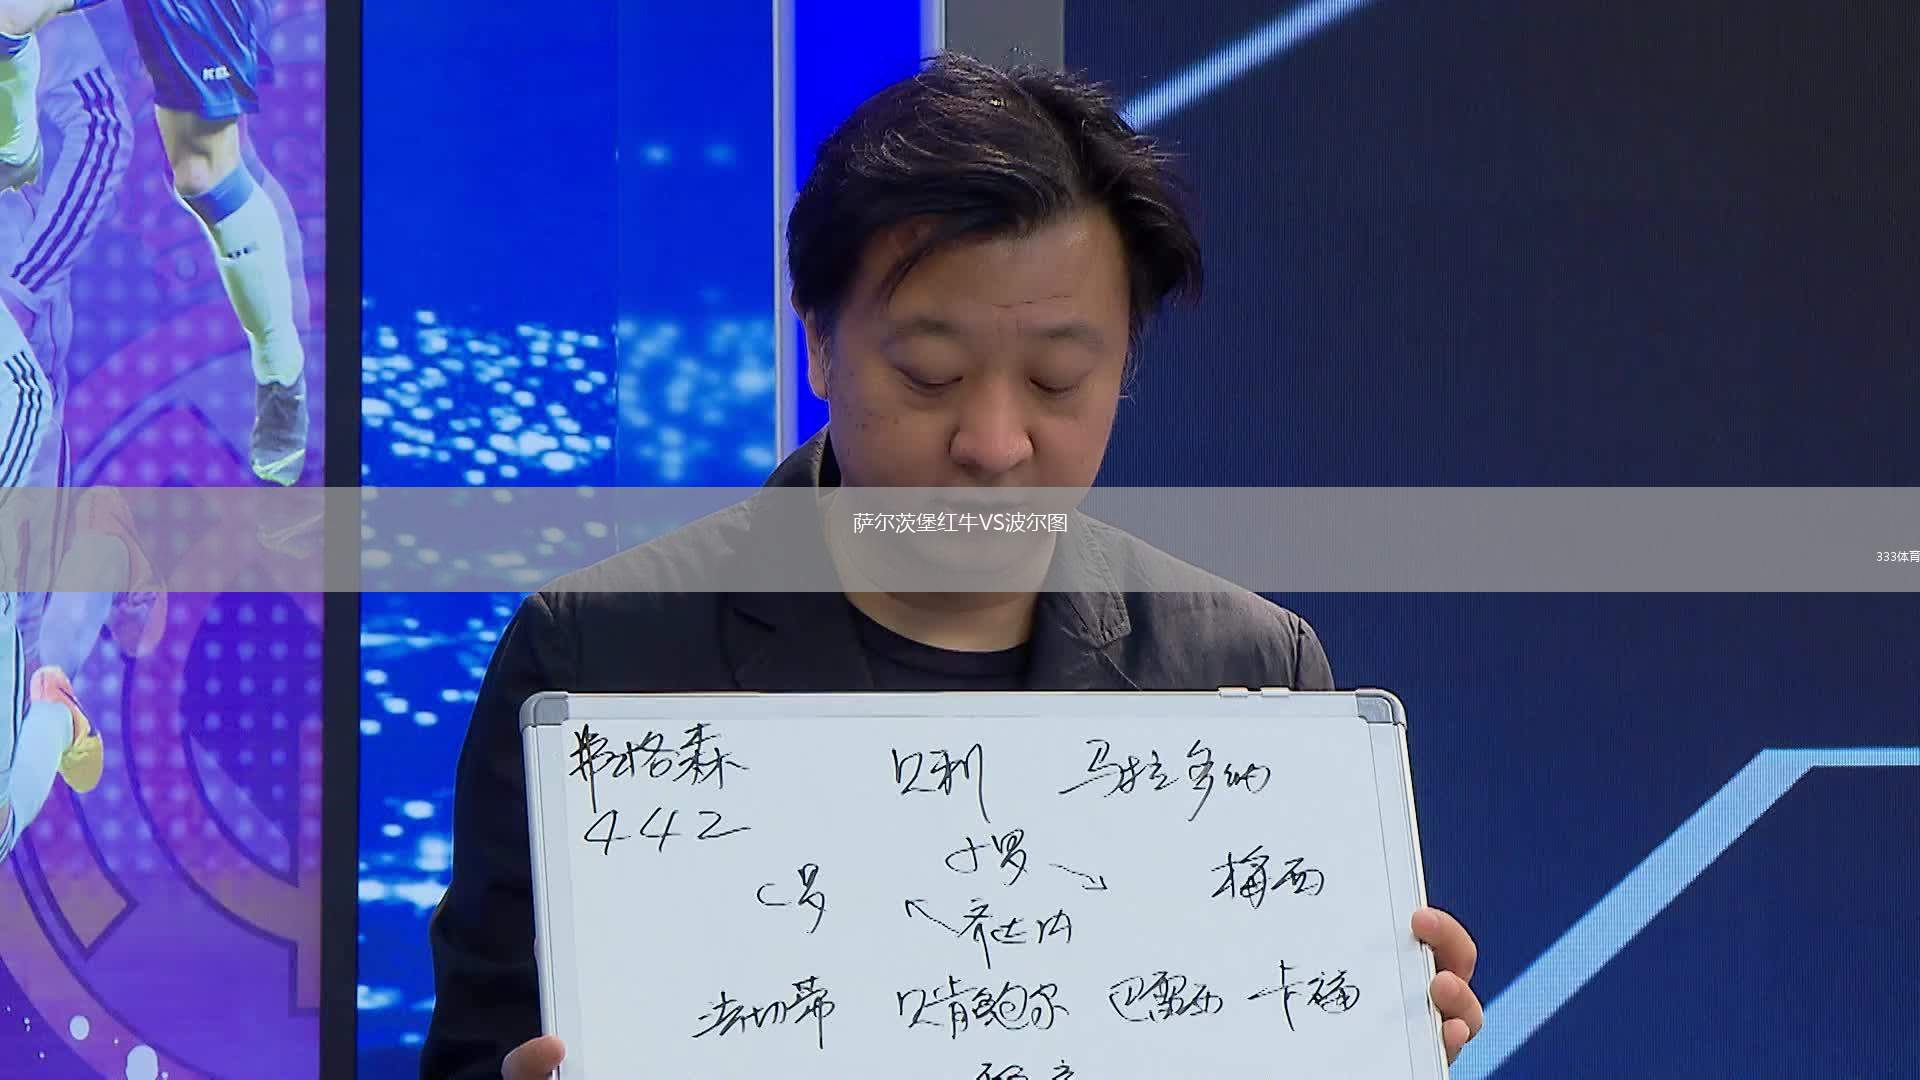 萨尔茨堡红牛VS波尔图
333体育
弗格森 贝利 马拉多纳
442
小罗
C罗 梅西
齐达内
法切蒂 贝肯鲍尔 巴雷西 卡福